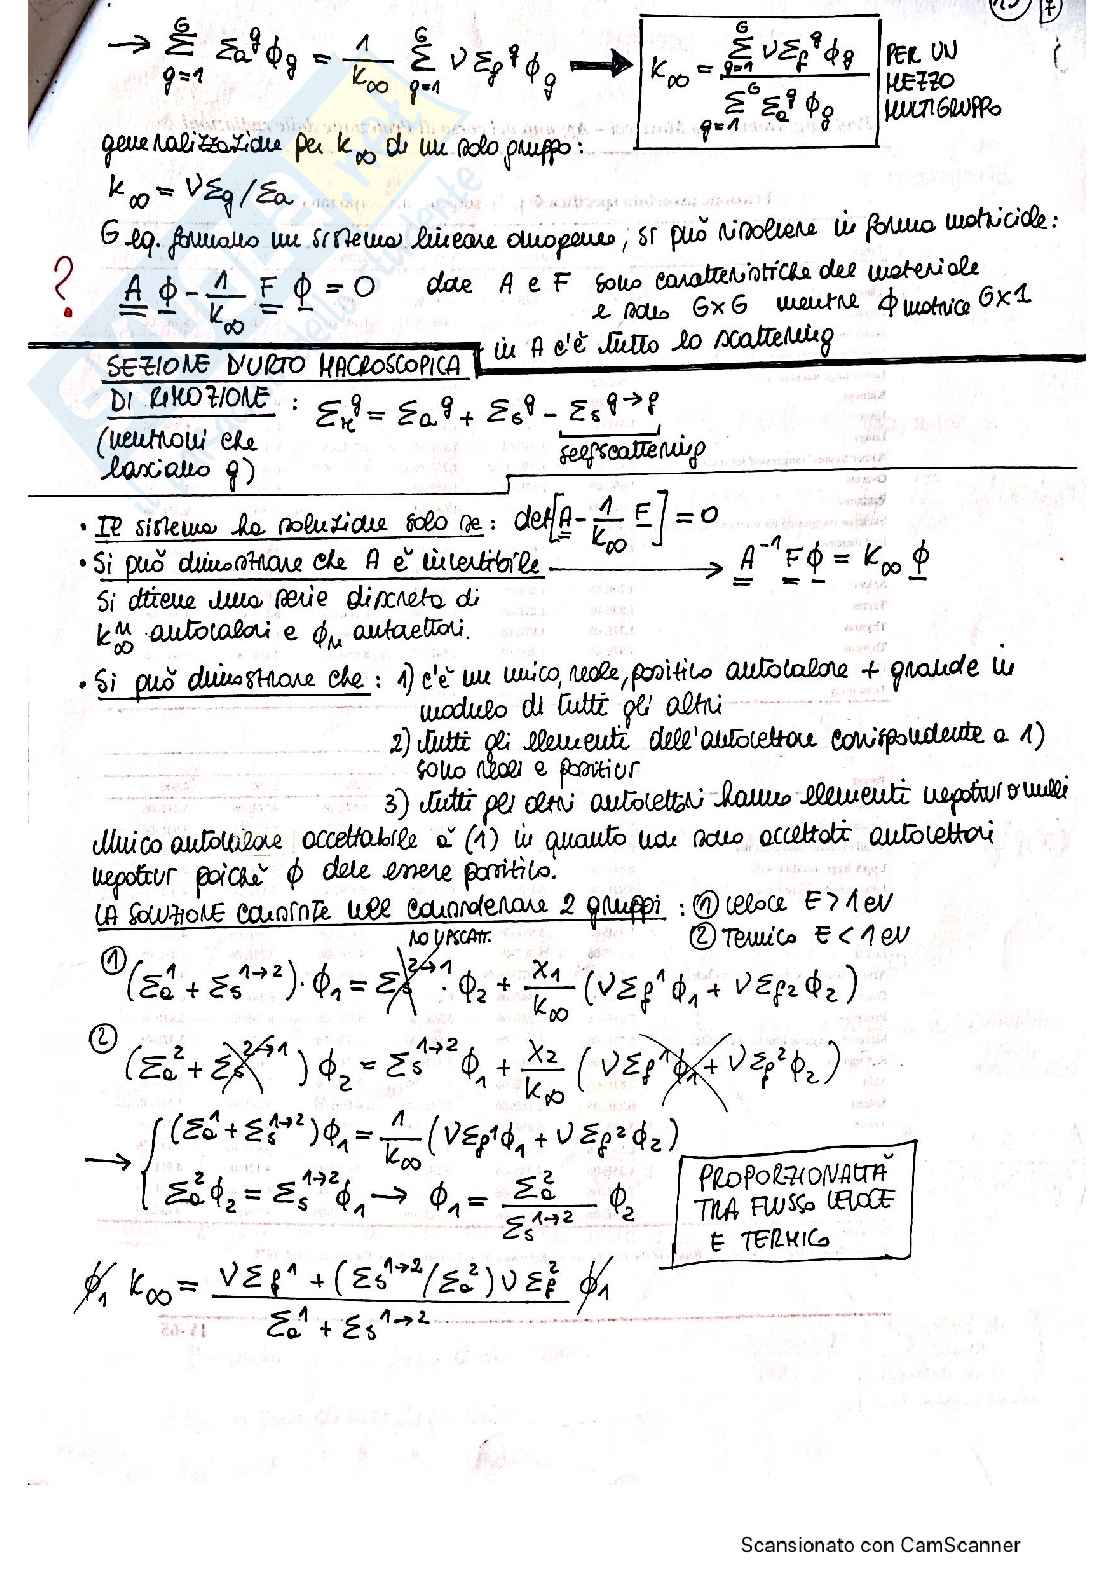 → Σ_{g=1}^{G} Σa^g ϕg = 1/K∞ Σ_{g=1}^{G} νΣf^g ϕg → K∞ = Σ_{g=1}^{G} νΣf^g ϕg / Σ_{g=1}^{G} Σa^g ϕg PER UN MEZZO MULTIGRUPPO
generalizzazione per K∞ di un solo gruppo:
K∞ = νΣg/Σa
G eq. formano un sistema lineare omogeneo, si può risolvere in forma matriciale:
? A ϕ - 1/K∞ F ϕ = 0 dove A e F sono caratteristiche del materiale
e sono G×G mentre ϕ matrice G×1
in A c'è tutto lo scattering
SEZIONE D'URTO MACROSCOPICA
DI RIMOZIONE : Σr^g = Σa^g + Σs^g - Σs^{g→g}
(neutroni che selfscattering
lasciano g)
• Il sistema ha soluzione solo se: det[A - 1/K∞ F] = 0
• Si può dimostrare che A è invertibile → A^{-1} F ϕ = K∞ ϕ
Si ottiene una serie discreta di
K∞^n autovalori e ϕn autovettori.
• Si può dimostrare che : 1) c'è un unico, reale, positivo autovalore + grande in
modulo di tutti gli altri
2) tutti gli elementi dell'autovettore corrispondente a 1)
sono reali e positivi
3) tutti gli altri autovettori hanno elementi negativi o nulli
Unico autovalore accettabile è (1) in quanto non sono accettati autovettori
negativi poichè ϕ deve essere positivo.
LA SOLUZIONE consiste nel considerare 2 gruppi : ① veloce E > 1 eV
NO UPSCATT. ② Termico E < 1 eV
① (Σa^1 + Σs^{1→2})·ϕ1 = Σs^{2→1}·ϕ2 + χ1/K∞ (νΣf^1 ϕ1 + νΣf2 ϕ2)
② (Σa^2 + Σs^{2→1}) ϕ2 = Σs^{1→2} ϕ1 + χ2/K∞ (νΣf^1 ϕ1 + νΣf^2 ϕ2)
→ { (Σa^1 + Σs^{1→2})ϕ1 = 1/K∞ (νΣf^1 ϕ1 + νΣf^2 ϕ2)
Σa^2 ϕ2 = Σs^{1→2} ϕ1 → ϕ1 = Σa^2 / Σs^{1→2} ϕ2
PROPORZIONALTÀ
TRA FLUSSO VELOCE
E TERMICO
ϕ1 K∞ = νΣf^1 + (Σs^{1→2}/Σa^2) νΣf^2 / Σa^1 + Σs^{1→2} ϕ1
Scansionato con CamScanner